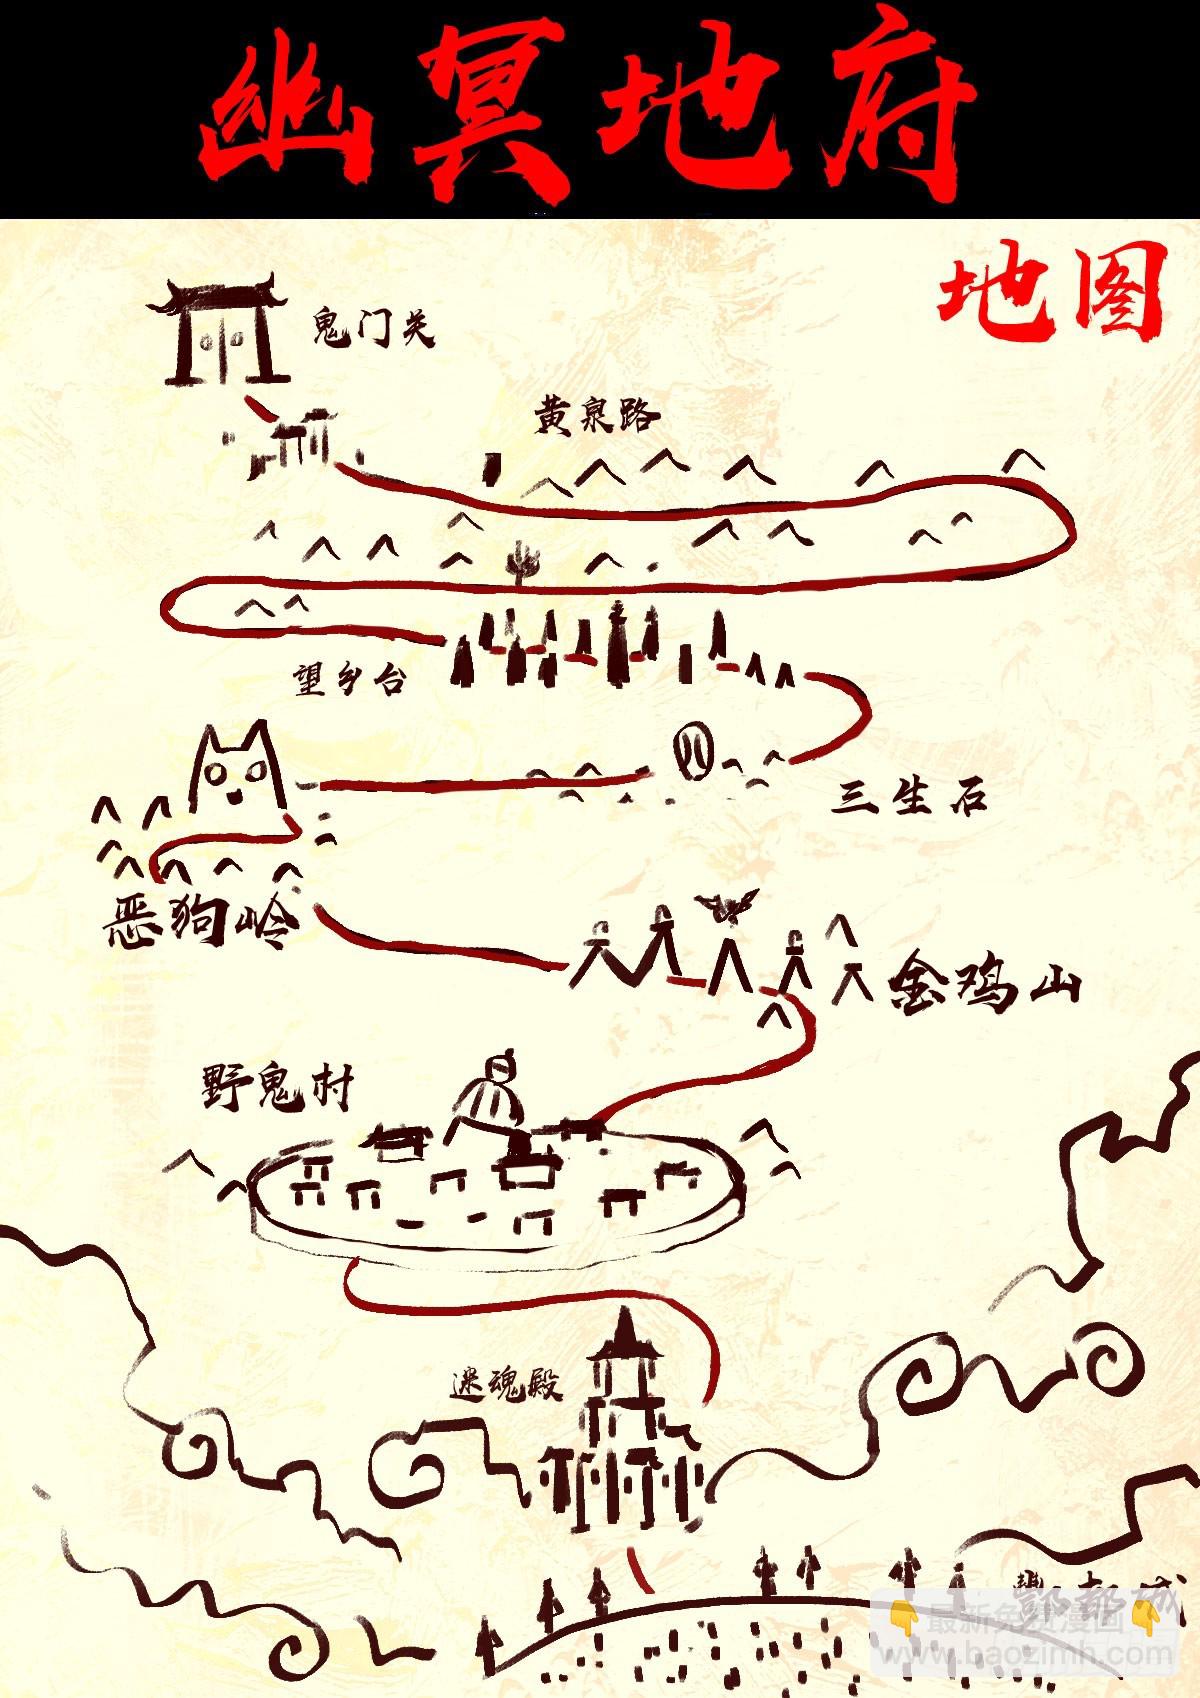 幽冥地府
地图
鬼门关
黄泉路
望乡台
三生石
恶狗岭
金鸡山
野鬼村
迷魂殿
酆都城
最新免费漫画
www.baozimh.com